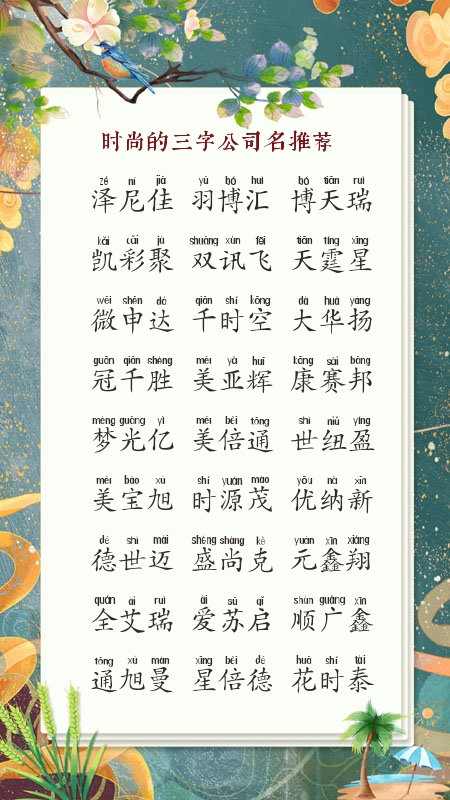 时尚的三字公司名推荐
zé ní jiā yǔ bó huì bó tiān ruì
泽尼佳 羽博汇 博天瑞
kǎi cǎi jù shuāng xùn fēi tiān tíng xīng
凯彩聚 双讯飞 天霆星
wēi shēn dá qiān shí kōng dà huá yáng
微申达 千时空 大华扬
guān qiān shèng měi yà huī kāng sài bāng
冠千胜 美亚辉 康赛邦
mèng guāng yì měi bèi tōng shì niǔ yíng
梦光亿 美倍通 世纽盈
měi bǎo xù shí yuán mào yōu nà xīn
美宝旭 时源茂 优纳新
dé shì mài shèng shàng kè yuán xīn xiáng
德世迈 盛尚克 元鑫翔
quán ài ruì ài sū qǐ shùn guǎng xīn
全艾瑞 爱苏启 顺广鑫
tōng xù màn xīng bèi dé huā shí tài
通旭曼 星倍德 花时泰